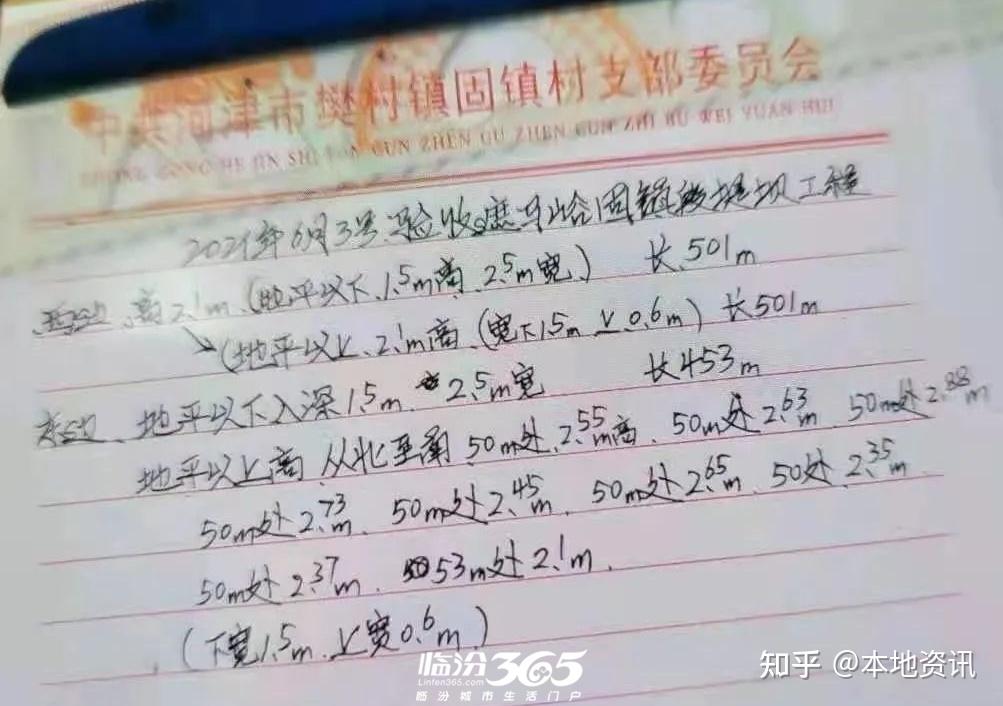 中共河津市樊村镇固镇村支部委员会
ZHONG GONG HE JIN SHI FAN CUN ZHEN GU ZHEN CUN ZHI BU WEI YUAN HUI
2021年6月3号.验收遮马峪固镇段堤坝工程
西边、高2.1m.(地平以下.1.5m高.2.5m宽.) 长.501m
(地平以上.2.1m高.(宽下1.5m上0.6m) 长501m
东边、地平以下入深1.5m. 2.5m宽 长453m
地平以上高.从北至南.50m处.2.55m高.50m处2.63m.50m处2.88m
50m处2.73m.50m处2.45m.50m处2.65m.50处2.35m
50m处2.37m.53m处2.1m.
(下宽1.5m.上宽0.6m.)
临汾365
Linfen365.com
临汾城市生活门户
知乎 @本地资讯